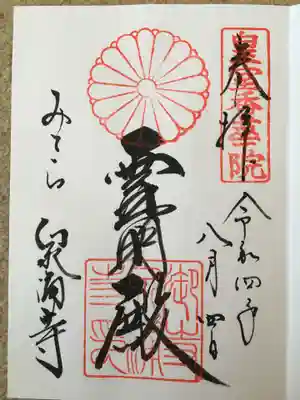 皇室香華院
奉拝
令和四年
八月四日
霊明殿
みてら
泉涌寺